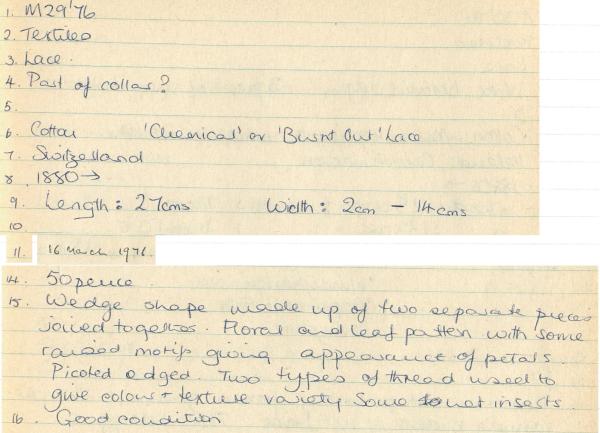 1. M29'76
2. Textiles
3. Lace.
4. Part of collar?
5.
6. Cotton 'Chemical' or 'Burnt Out' Lace
7. Switzerland
8. 1880→
9. Length: 27cms Width: 2cm - 14cms
10.
11. 16 March 1976.
14. 50pence.
15. Wedge shape made up of two separate pieces
joined together. Floral and leaf pattern with some
raised motifs giving appearance of petals.
Picoted edged. Two types of thread used to
give colour + texture variety. Some net insects.
16. Good condition